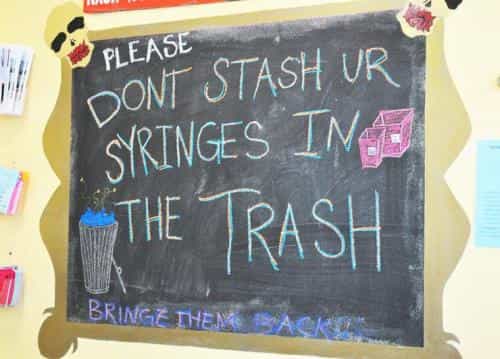 PLEASE
DONT STASH UR
SYRINGES IN
THE TRASH
BRINGE THEM BACK!!